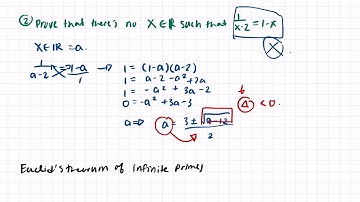 ② Prove that there's no X∈ℝ such that 1/(x-2) = 1-x
X∈ℝ = a.
1/(a-2) = (1-a)/1
1 = (1-a)(a-2)
1 = a-2-a²+2a
1 = -a²+3a-2
0 = -a²+3a-3
Δ < 0.
a⇒ a = (3 ± √(9-12))/2
Euclid's theorum of infinite primes